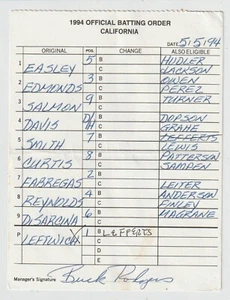 1994 OFFICIAL BATTING ORDER
CALIFORNIA
DATE 5/5/94
ORIGINAL POS. CHANGE ALSO ELIGIBLE
1 EASLEY 5 B HUDLER
C JACKSON
2 EDMONDS 3 B OWEN
C PEREZ
3 SALMON 9 B TURNER
C
4 DAVIS DH B DOPSON
C GRAHE
5 SMITH 7 B LEFFERTS
C LEWIS
6 CURTIS 8 B PATTERSON
C SAMPEN
7 FABREGAS 2 B
C LEITER
8 REYNOLDS 4 B ANDERSON
C FINLEY
9 DISARCINA 6 B MAGRANE
C
P LEFTWICH 1 B LEFFERTS
C
D
E
Manager's Signature Buck Rodgers